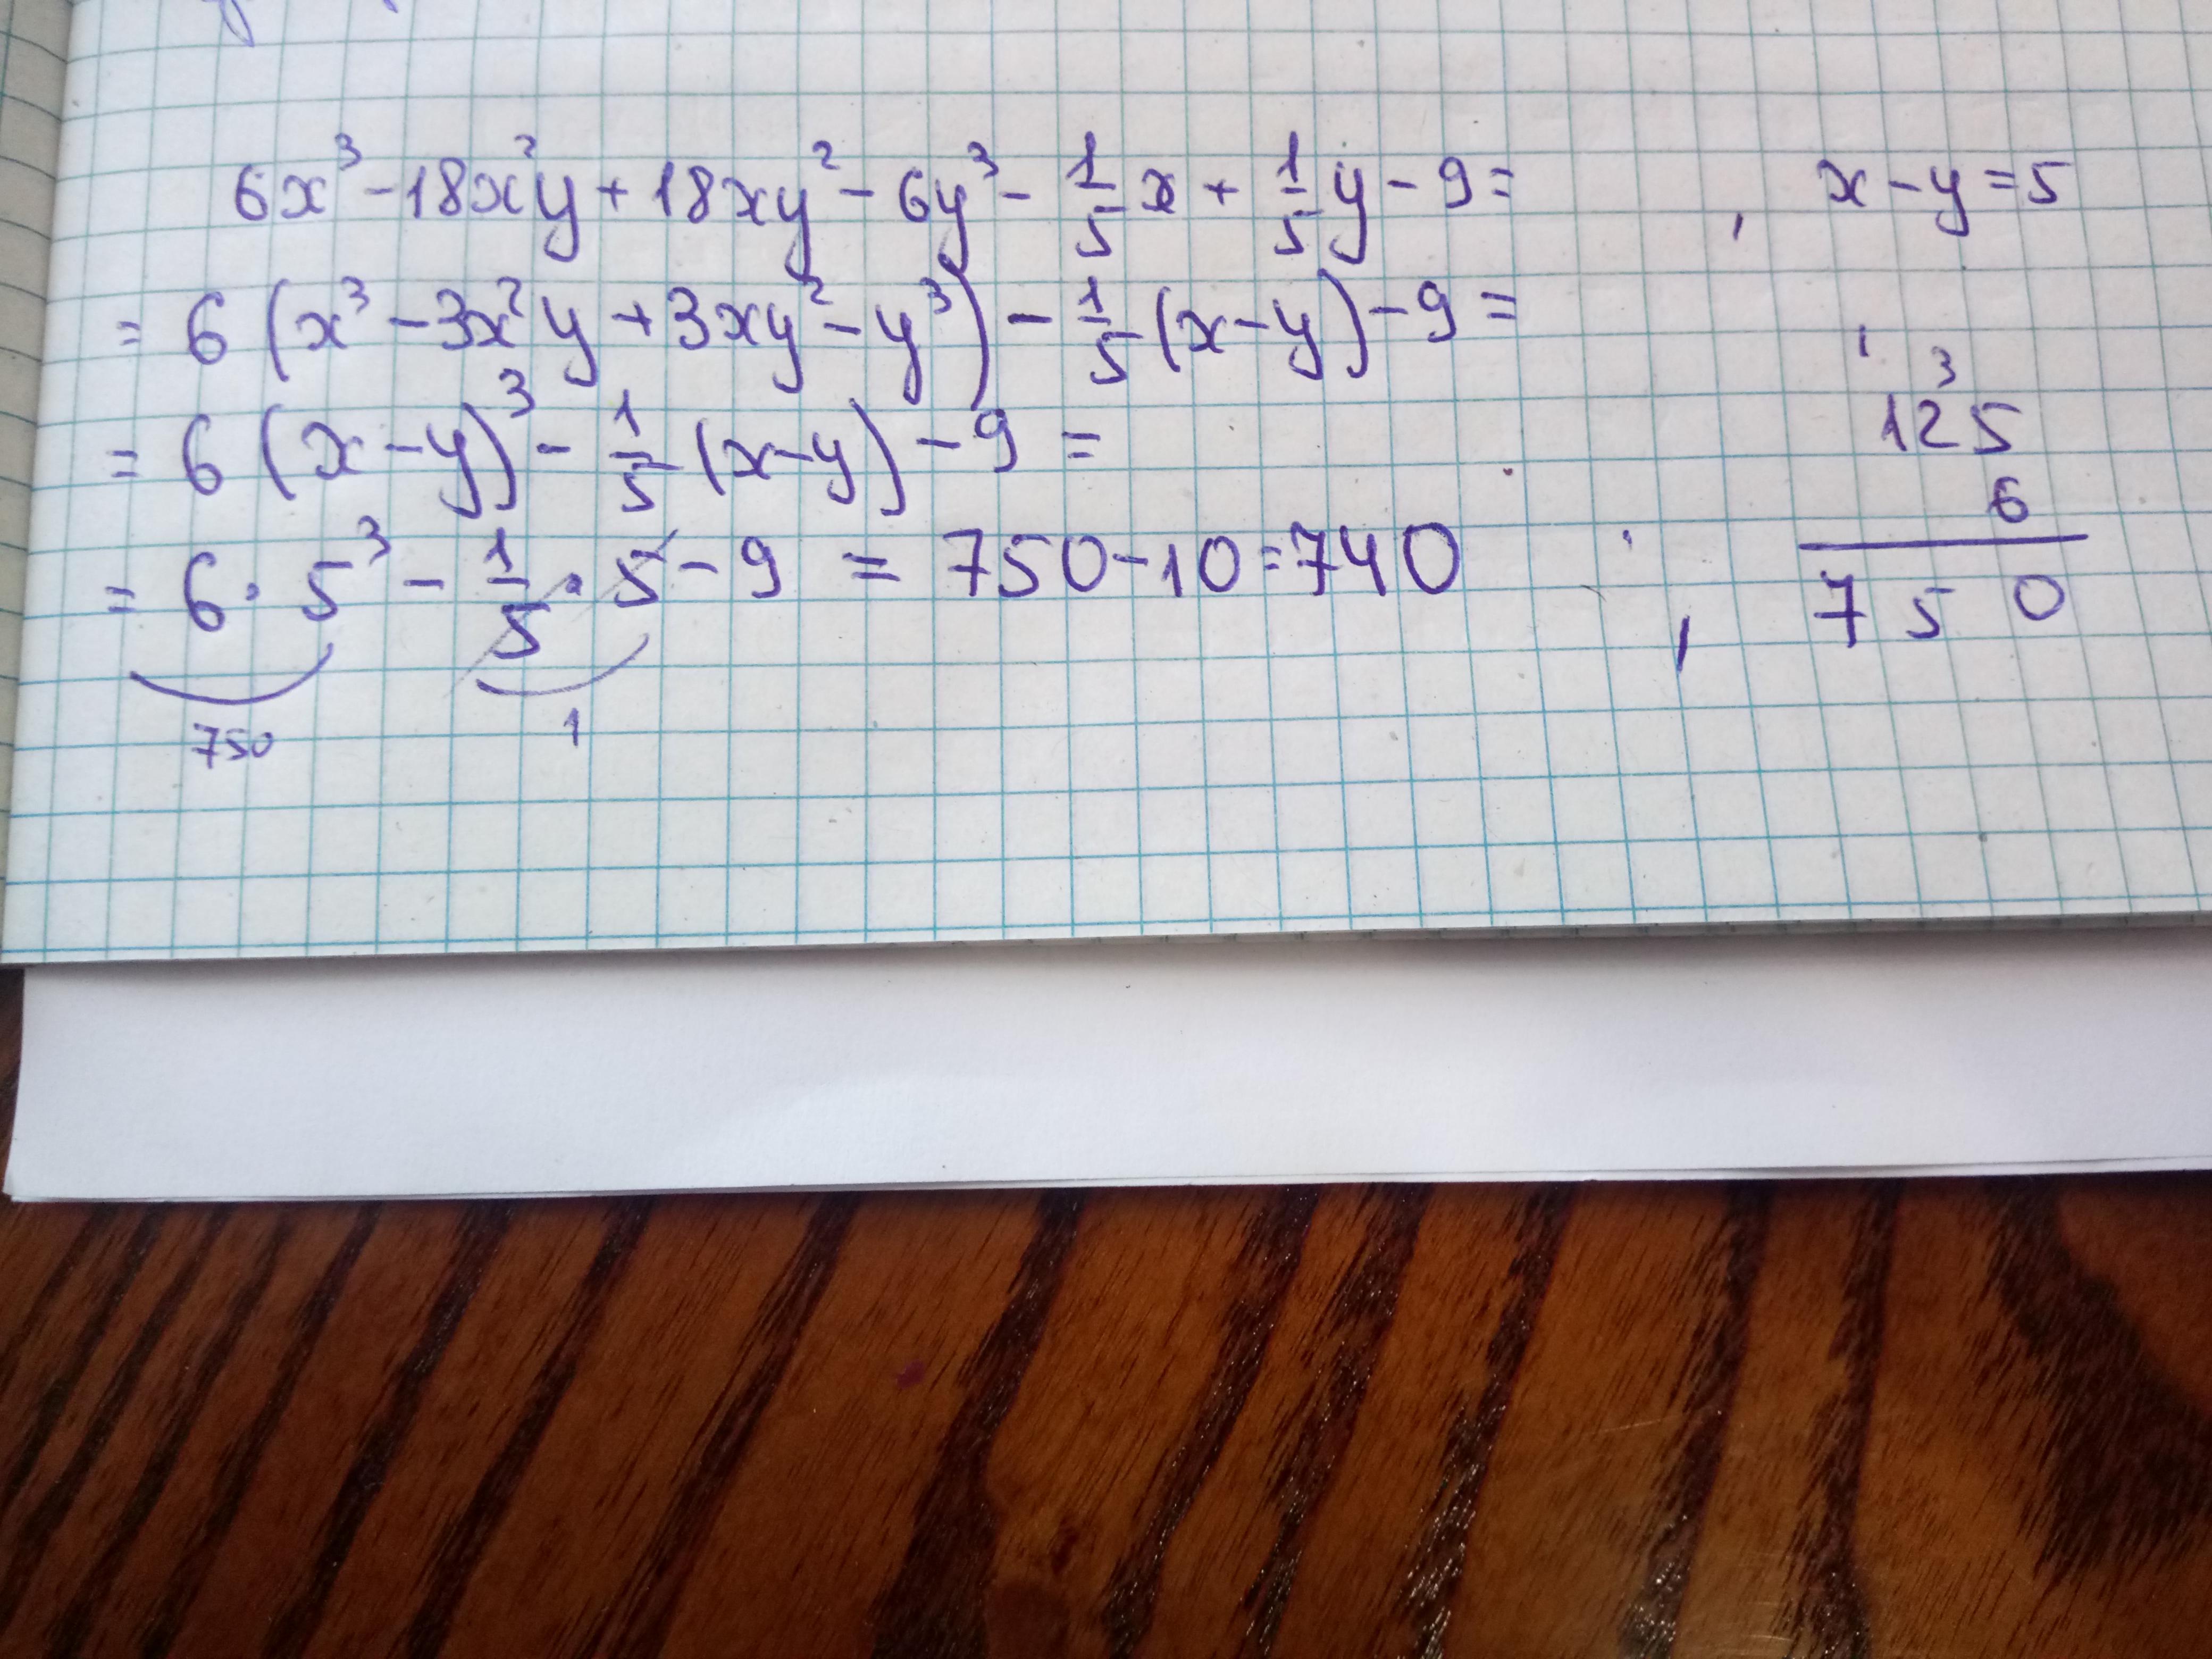 6x³ - 18x²y + 18xy² - 6y³ - 1/5 x + 1/5 y - 9 = , x - y = 5
= 6 (x³ - 3x²y + 3xy² - y³) - 1/5 (x - y) - 9 =
= 6 (x - y)³ - 1/5 (x - y) - 9 =
= 6 · 5³ - 1/5 · 5 - 9 = 750 - 10 = 740
750 1
3
125
6
750